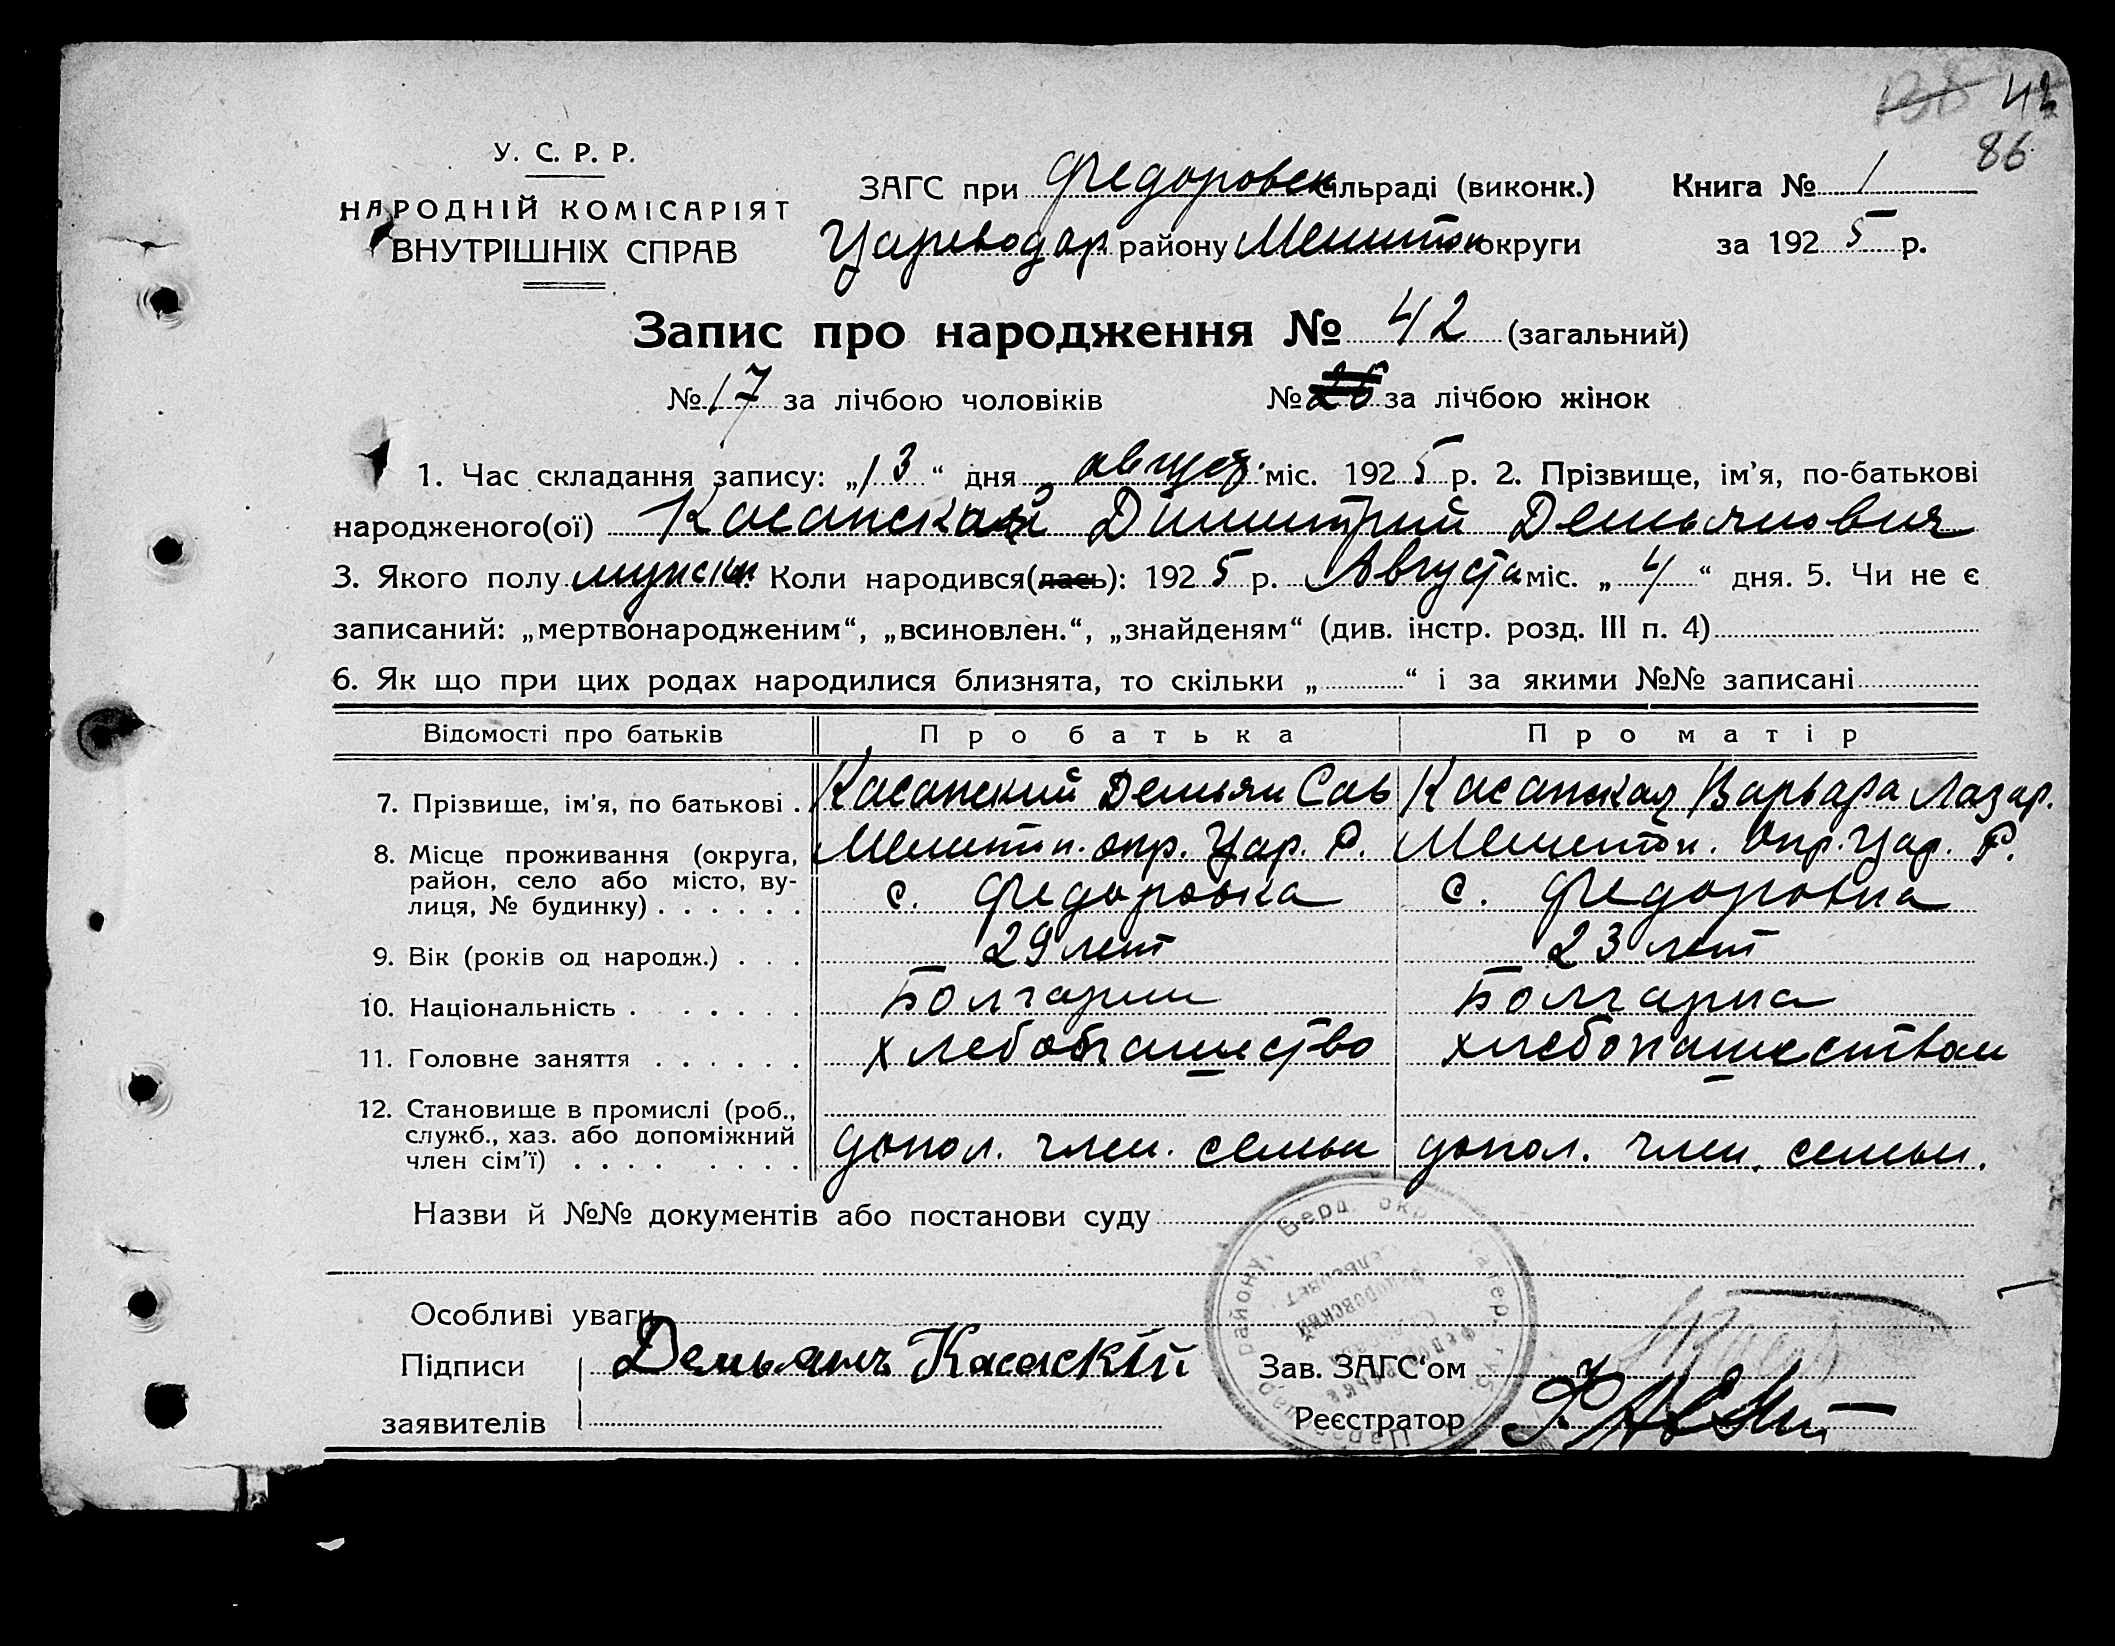 42
86
У. С. Р. Р.
НАРОДНІЙ КОМІСАРІЯТ
ВНУТРІШНІХ СПРАВ
ЗАГС при Федоровск сільраді (виконк.) Книга № 1
Цареводар району Мелитоп округи за 192 5 р.
Запис про народження № 42 (загальний)
№ 17 за лічбою чоловіків № 26 за лічбою жінок
1. Час складання запису: „13“ дня август міс. 192 5 р. 2. Прізвище, ім'я, по-батькові
народженого(ої) Касапский Димитрий Демьянович
3. Якого полу мужск. Коли народився(лась): 192 5 р. Августа міс. „4“ дня. 5. Чи не є
записаний: „мертвонародженим“, „всиновлен.“, „знайденям“ (див. інстр. розд. III п. 4)
6. Як що при цих родах народилися близнята, то скільки „ “ і за якими №№ записані
Відомості про батьків Про батька Про матір
7. Прізвище, ім'я, по батькові . Касапский Демьян Сав Касапская Варвара Лазар.
8. Місце проживання (округа, район, село або місто, вулиця, № будинку) . . . . . . Мелитоп. окр. Цар. Р. Мелитоп. Окр. Цар. Р.
с. Федоровка с. Федоровка
9. Вік (років од народж.) . . . 29 лет 23 лет
10. Національність . . . . . . . Болгарин Болгарка
11. Головне заняття . . . . . . хлебопашество хлебопашеством
12. Становище в промислі (роб., служб., хаз. або допоміжний член сім'ї) . . . . . . . . допол. член. семьи допол. член. семьи.
Назви й №№ документів або постанови суду
Особливі уваги
Підписи Демьянъ Касапскій Зав. ЗАГС'ом
заявителів Реєстратор